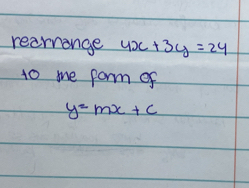 rearrange 4x + 3y = 24
to the form of
y = mx + c